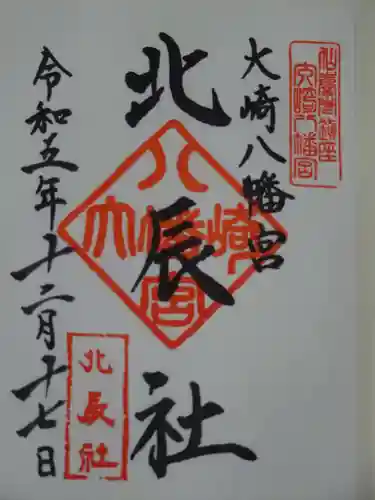 仙臺市鎮座
大崎八幡宮
大崎八幡宮
北辰社
八
大幡崎
宮
令和五年十二月十七日
北辰社